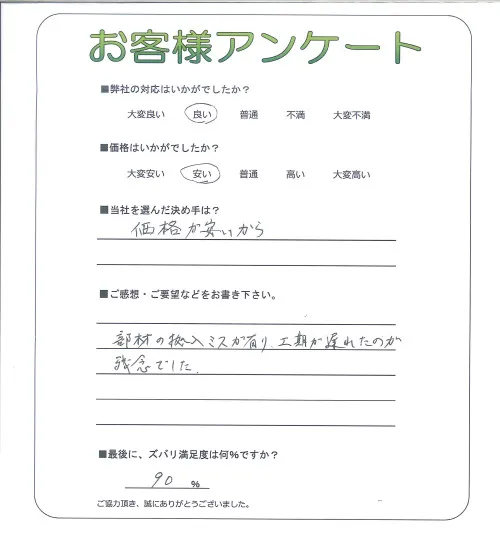 お客様アンケート
■弊社の対応はいかがでしたか?
大変良い 良い 普通 不満 大変不満
■価格はいかがでしたか?
大変安い 安い 普通 高い 大変高い
■当社を選んだ決め手は?
価格が安いから
■ご感想・ご要望などをお書き下さい。
部材の搬入ミスが有り、工期が遅れたのが
残念でした。
■最後に、ズバリ満足度は何%ですか?
90 %
ご協力頂き、誠にありがとうございました。